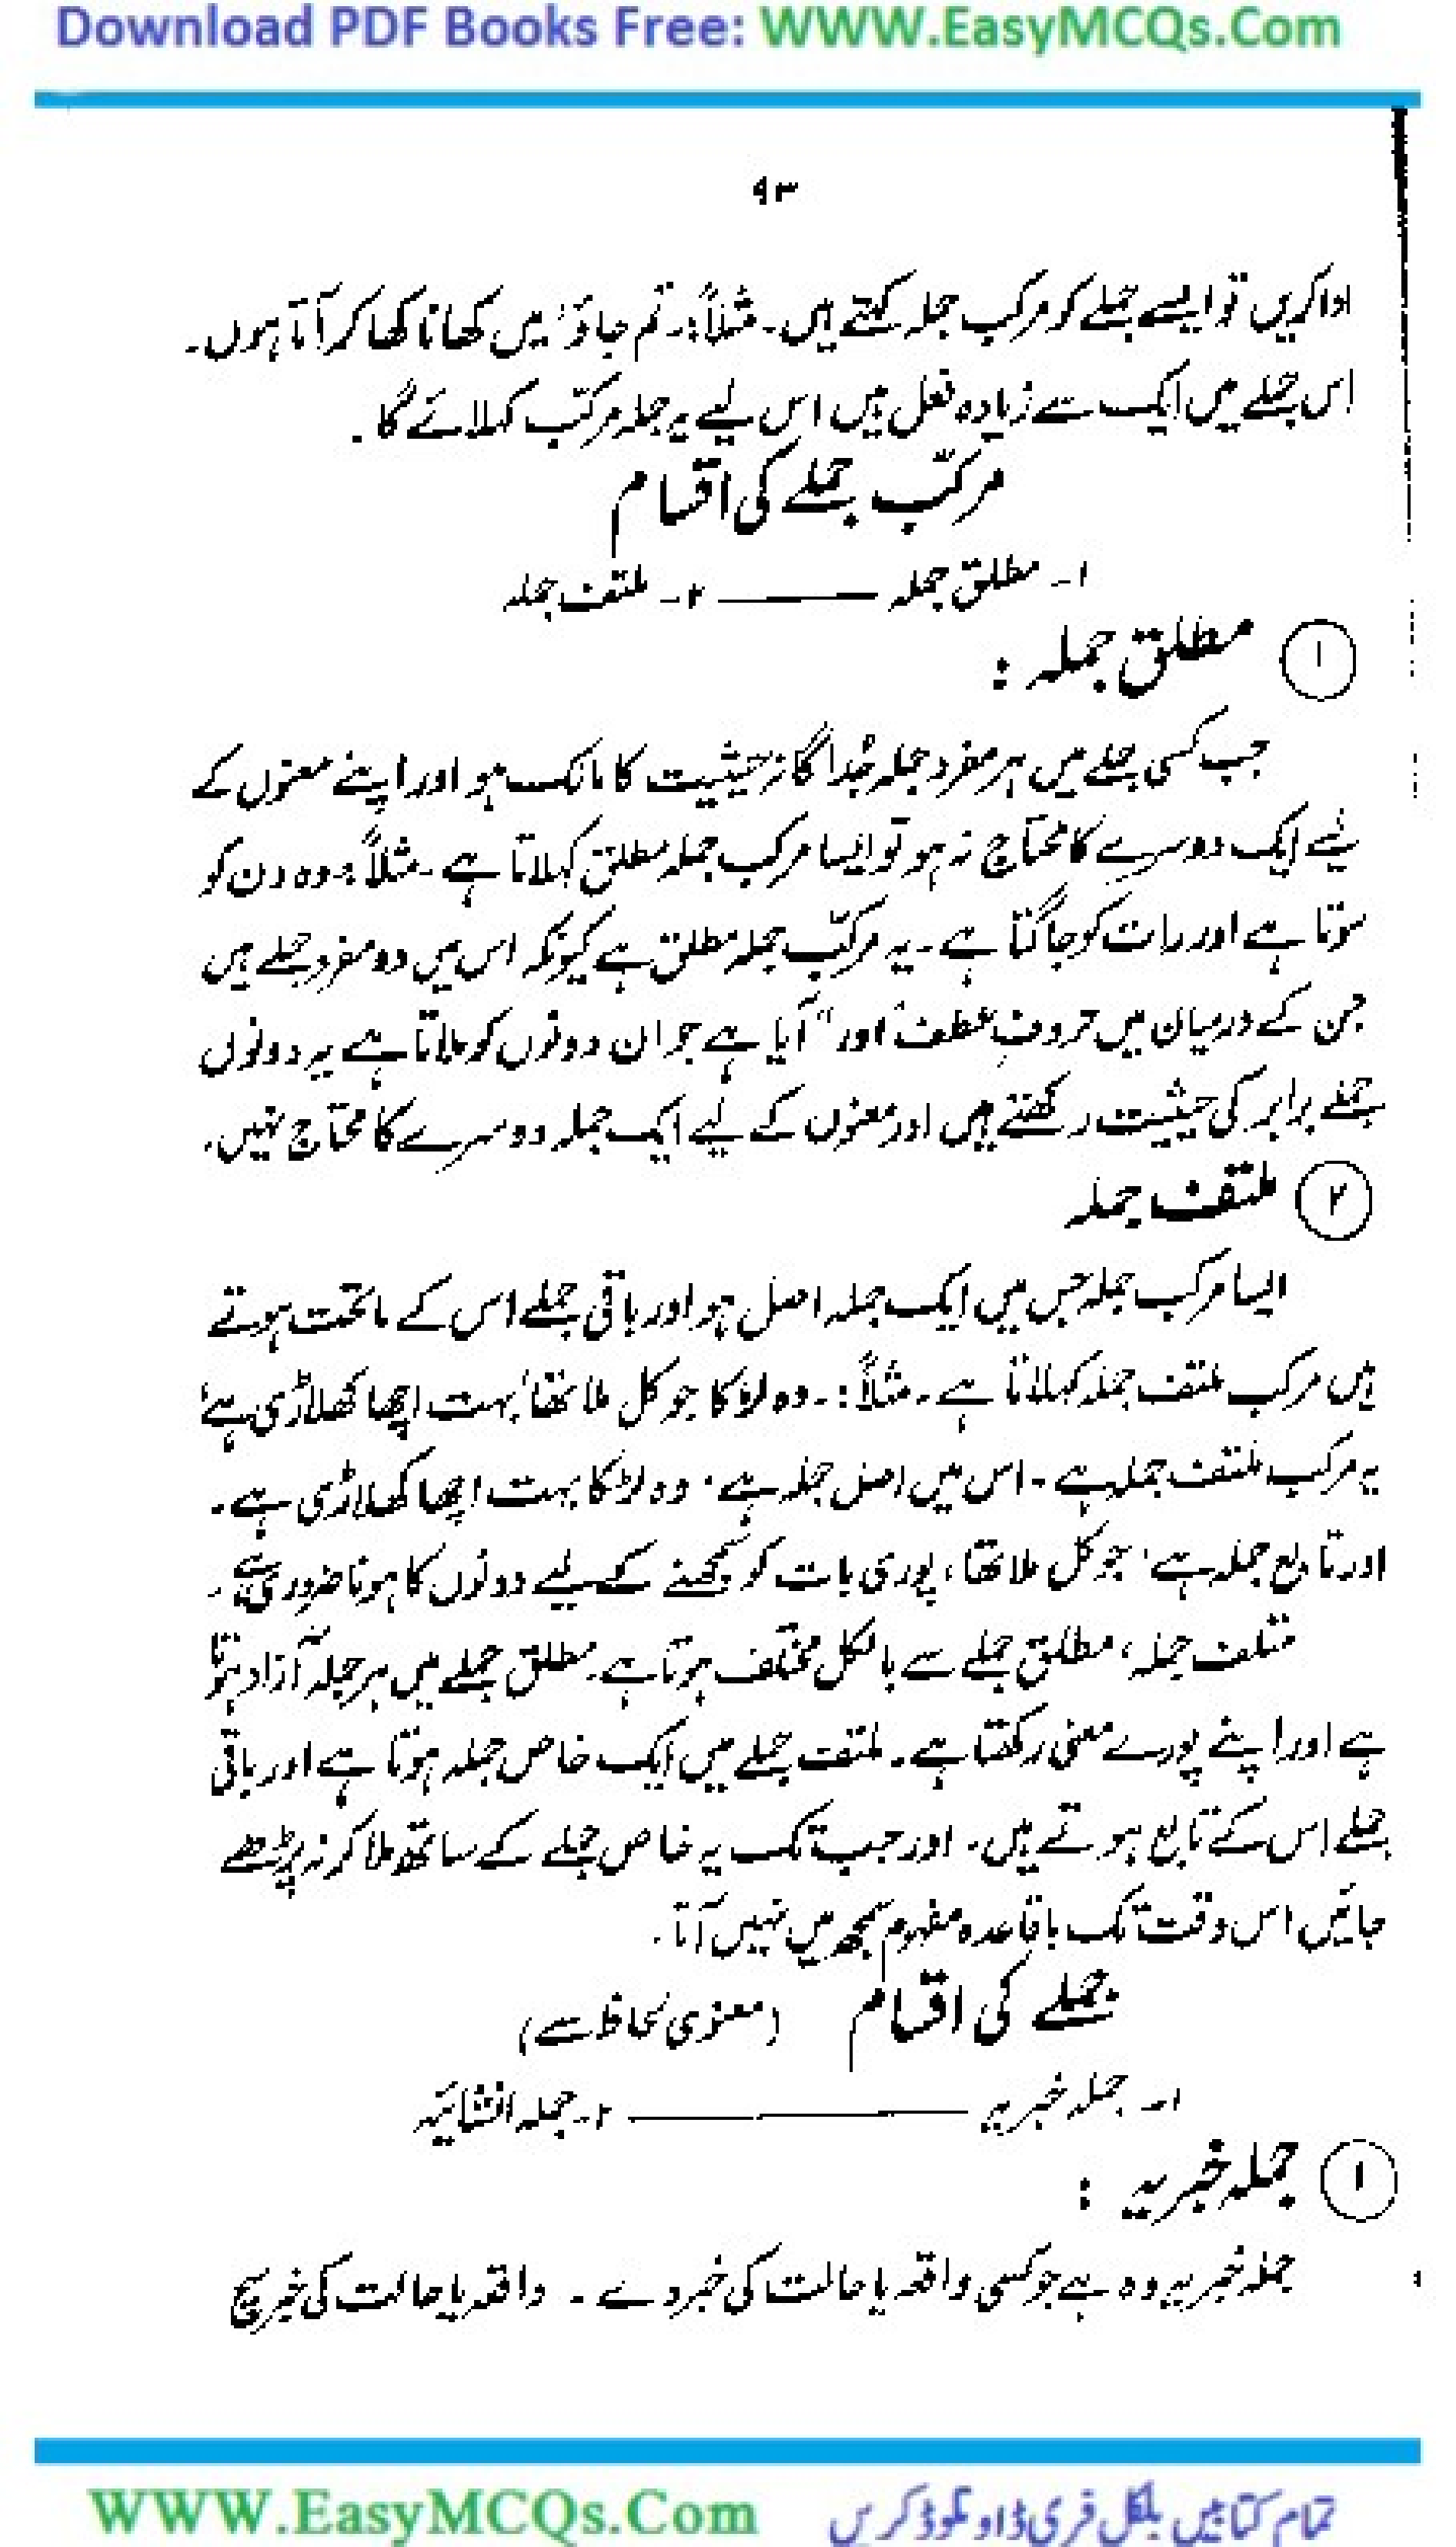 Download PDF Books Free: WWW.EasyMCQs.Com
۹۳
ادا کریں تو ایسے جملے کو مرکب جملہ کہتے ہیں۔ مثلاً:۔ تم جاؤ، میں کھانا کھا کر آتا ہوں۔
اس جملے میں ایک سے زیادہ فعل ہیں اس لیے یہ جملہ مرکّب کہلائے گا۔
مرکّب جملے کی اقسام
۱۔ مطلق جملہ ——— ۲۔ ملتف جملہ
۱ مطلق جملہ :
جب کسی جملے میں ہر مفرد جملہ جُداگانہ حیثیت کا مالک ہو اور اپنے معنوں کے
لیے ایک دوسرے کا محتاج نہ ہو تو ایسا مرکب جملہ مطلق کہلاتا ہے۔ مثلاً :۔ وہ دن کو
سوتا ہے اور رات کو جاگتا ہے۔ یہ مرکّب جملہ مطلق ہے کیونکہ اس میں دو مفرد جملے ہیں
جن کے درمیان میں حروفِ عطف "اور" آیا ہے جو ان دونوں کو ملاتا ہے یہ دونوں
جملے برابر کی حیثیت رکھتے ہیں اور معنوں کے لیے ایک جملہ دوسرے کا محتاج نہیں۔
۲ ملتف جملہ
ایسا مرکب جملہ جس میں ایک جملہ اصل ہو اور باقی جملے اس کے ماتحت ہوتے
ہیں مرکب ملتف جملہ کہلاتا ہے۔ مثلاً :۔ وہ لڑکا جو کل ملا تھا، بہت اچھا کھلاڑی ہے،
یہ مرکب ملتف جملہ ہے۔ اس میں اصل جملہ ہے، وہ لڑکا بہت اچھا کھلاڑی ہے۔
اور تابع جملہ ہے، جو کل ملا تھا، پوری بات کو سمجھنے کے لیے دونوں کا ہونا ضروری ہے۔
متلف جملہ، مطلق جملے سے بالکل مختلف ہوتا ہے۔ مطلق جملے میں ہر جملہ آزاد ہوتا
ہے اور اپنے پورے معنی رکھتا ہے۔ ملتف جملے میں ایک خاص جملہ ہوتا ہے اور باقی
جملے اس کے تابع ہوتے ہیں۔ اور جب تک یہ خاص جملے کے ساتھ ملا کر نہ پڑھے
جائیں اس وقت تک باقاعدہ مفہوم سمجھ میں نہیں آتا۔
جملے کی اقسام (معنوی لحاظ سے)
۱۔ جملہ خبریہ ——— ۲۔ جملہ انشائیہ
۱ جملہ خبریہ :
جملہ خبریہ وہ ہے جو کسی واقعہ یا حالت کی خبر دے ۔ واقعہ یا حالت کی خبر سچ
WWW.EasyMCQs.Com تمام کتابیں بلکل فری ڈاونلوڈ کریں